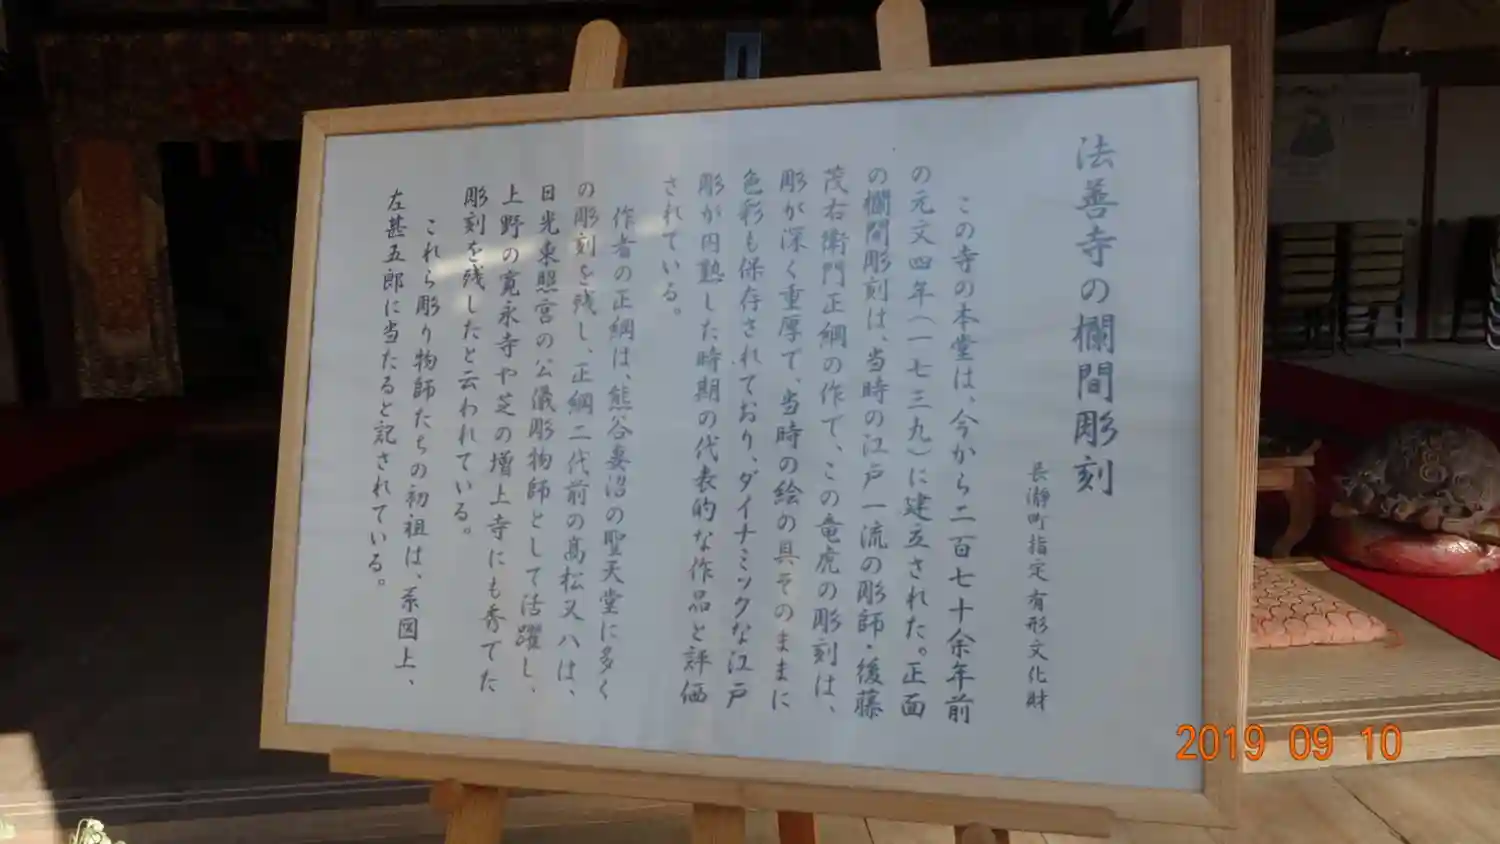 法善寺の欄間彫刻
長瀞町指定有形文化財
この寺の本堂は、今から二百七十余年前
の元文四年(一七三九)に建立された。正面
の欄間彫刻は、当時の江戸一流の彫師・後藤
茂右衛門正綱の作で、この竜虎の彫刻は、
彫が深く重厚で、当時の絵の具そのままに
色彩も保存されており、ダイナミックな江戸
彫が円熟した時期の代表的な作品と評価
されている。
作者の正綱は、熊谷妻沼の聖天堂に多く
の彫刻を残し、正綱二代前の高松又八は、
日光東照宮の公儀彫物師として活躍し、
上野の寛永寺や芝の増上寺にも秀でた
彫刻を残したと云われている。
これら彫り物師たちの初祖は、系図上、
左甚五郎に当たると記されている。
2019 09 10